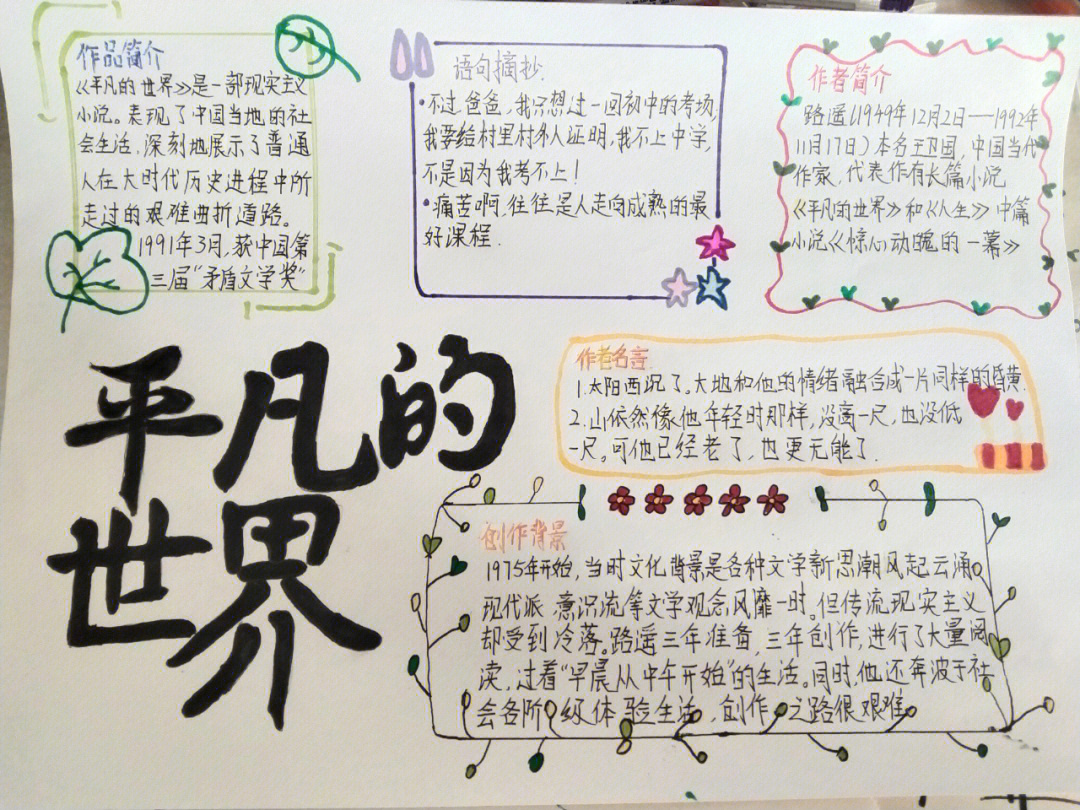 作品简介
《平凡的世界》是一部现实主义
小说。表现了中国当地的社
会生活,深刻地展示了普通
人在大时代历史进程中所
走过的艰难曲折道路。
1991年3月,获中国第
三届“矛盾文学奖”
语句摘抄.
·不过,爸爸,我只想过一回初中的考场,
我要给村里村外人证明,我不上中学,
不是因为我考不上!
·痛苦啊,往往是人走向成熟的最
好课程.
作者简介
路遥(1949年12月2日—1992年
11月17日)本名王卫国,中国当代
作家,代表作有长篇小说
《平凡的世界》和《人生》中篇
小说《惊心动魄的一幕》
平凡的
世界
作者名言.
1.太阳西沉了。大地和他的情绪融合成一片同样的昏黄.
2.山依然像他年轻时那样,没高一尺,也没低
一尺。可他已经老了,也更无能了.
创作背景
1975年开始,当时文化背景是各种文学新思潮风起云涌,
现代派 意识流等文学观念风靡一时。但传流现实主义
却受到冷落。路遥三年准备,三年创作,进行了大量阅
读,过着“早晨从中午开始”的生活。同时,他还奔波于社
会各阶级体验生活,创作之路很艰难